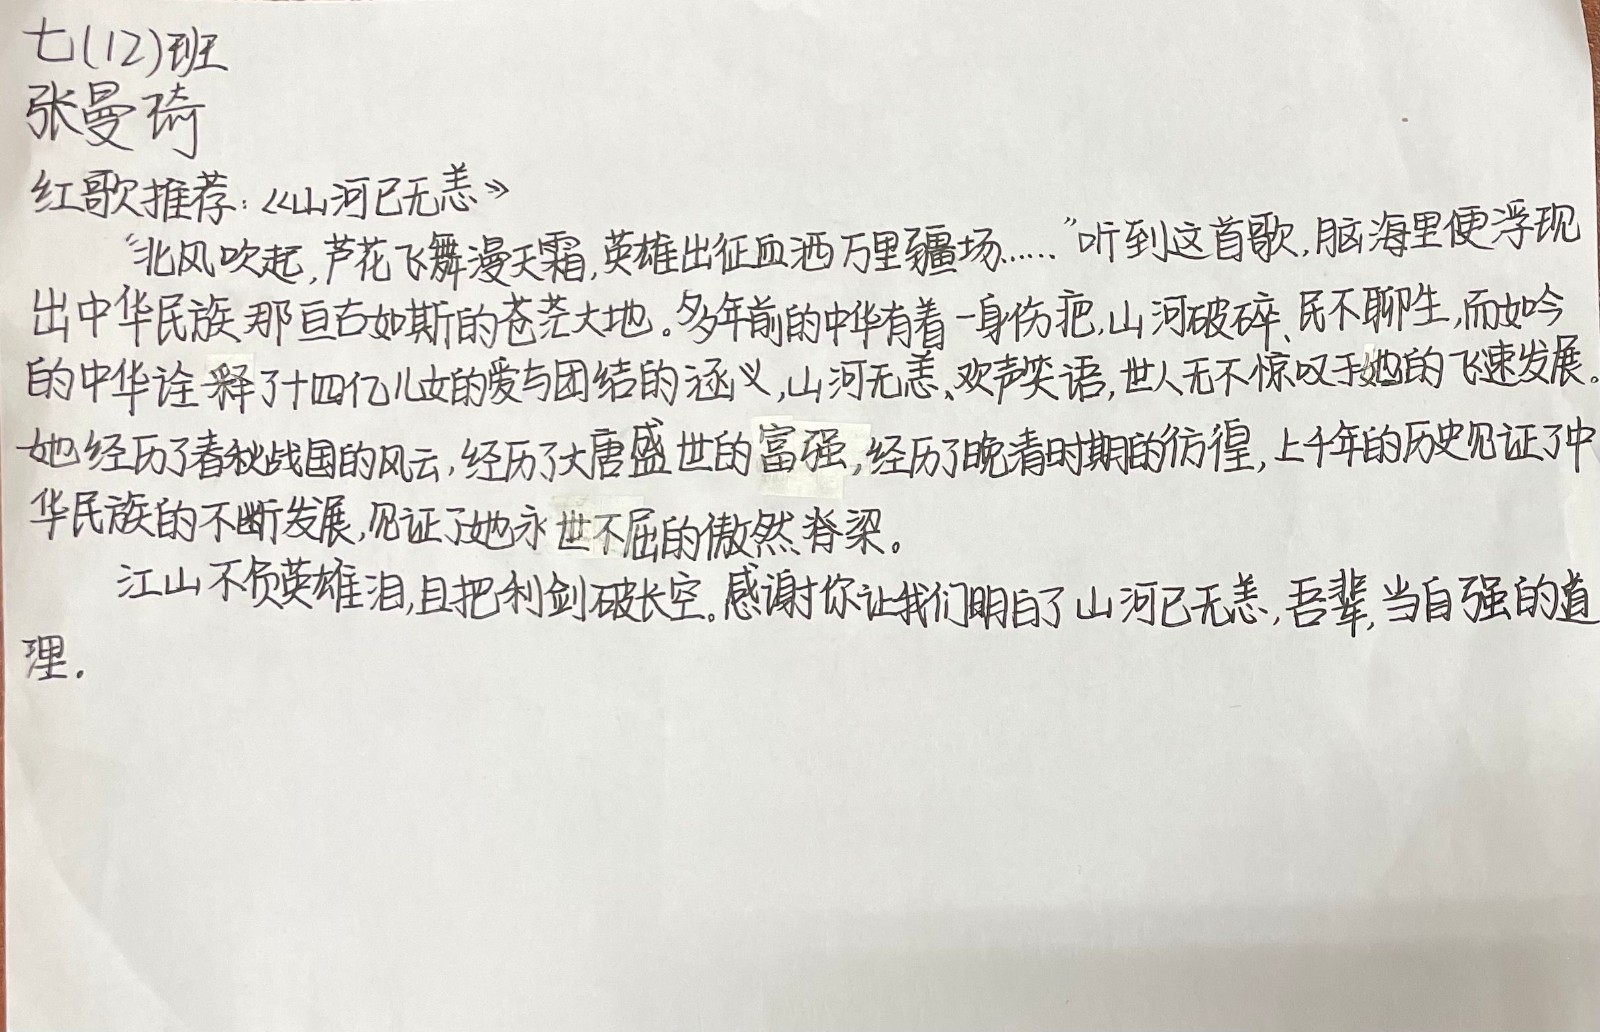 七(12)班
张曼琦
红歌推荐:《山河已无恙》
“北风吹起,芦花飞舞漫天霜,英雄出征血洒万里疆场……”听到这首歌,脑海里便浮现
出中华民族那亘古如斯的苍茫大地。多年前的中华有着一身伤疤,山河破碎、民不聊生,而如今
的中华诠释了十四亿儿女的爱与团结的涵义,山河无恙、欢声笑语,世人无不惊叹于她的飞速发展。
她经历了春秋战国的风云,经历了大唐盛世的富强,经历了晚清时期的彷徨,上千年的历史见证了中
华民族的不断发展,见证了她永世不屈的傲然脊梁。
江山不负英雄泪,且把利剑破长空。感谢你让我们明白了山河已无恙,吾辈,当自强的道
理.